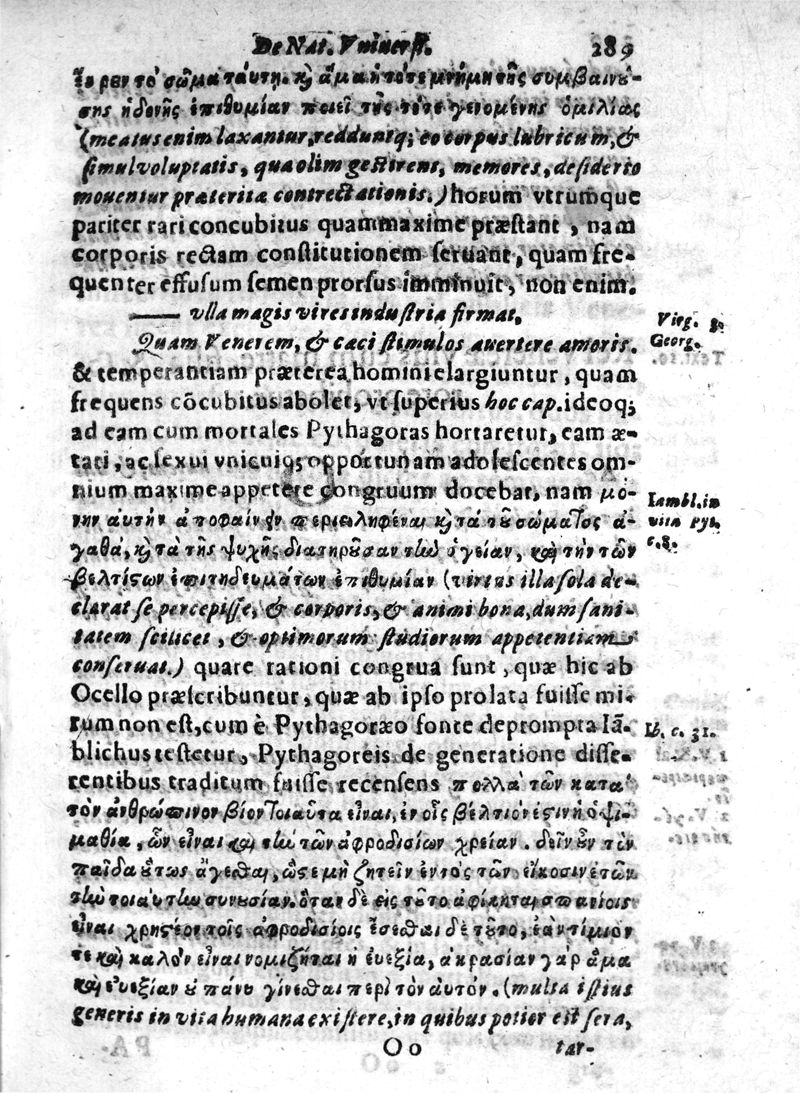 De Nat. Vniuersi. 289
ξε ρεν τὸ σῶμα ταύτῃ. κỳ ἅμα ἡ τότε μνήμη τῆς συμβαινύ-
σης ἡδονῆς ἐπιθυμίαν ποιεῖ τῆς τότε γενομένης ὁμιλίας
(meatus enim laxantur, reddũntq; eo corpus lubricum, &
simul voluptatis, qua olim gestirent, memores, desiderio
mouentur præteritæ contrectationis.) horum vtrumque
pariter rari concubitus quammaxime præstant, nam
corporis rectam constitutionem seruant, quam fre-
quenter effusum semen prorsus imminuit, non enim.
—— vlla magis vires industria firmat,
Quam Venerem, & caci stimulos auertere amoris.
Virg. 3.
Georg.
& temperantiam præterea homini elargiuntur, quam
frequens cõcubitus abolet, vt superius hoc cap. ideoq;
ad eam cum mortales Pythagoras hortaretur, eam æ-
tati, ac sexui vnicuiq; opportunam adolescentes om-
nium maxime appetere congruum docebat, nam μό-
Iambl. in
vita Pyt.
c. 8.
νην αὐτὴν ἀποφαίνων περιειληφέναι κỳ τὰ τοῦ σώματος ἀ-
γαθά, κỳ τὰ τῆς ψυχῆς διατηροῦσαν τὴν ὑγείαν, καὶ τὴν τῶν
βελτίστων ἐπιτηδευμάτων ἐπιθυμίαν (virtus illa sola de-
clarat se percepisse, & corporis, & animi bona, dum sani-
tatem scilicet, & optimorum studiorum appetentiam
conseruat.) quare rationi congrua sunt, quæ hic ab
Ocello præscribuntur, quæ ab ipso prolata fuisse mi-
rum non est, cum è Pythagoræo fonte deprompta Iã-
Ib. c. 31.
blichus testetur, Pythagoreis de generatione disse-
rentibus traditum fuisse recensens πολλὰ τῶν κατὰ
τὸν ἀνθρώπινον βίον τοιαῦτα εἶναι, ἐν οἷς βέλτιόν ἐστιν ἡ ὀψι-
μαθία, ὧν εἶναι καὶ τὴν τῶν ἀφροδισίων χρείαν. δεῖν οὖν τὸν
παῖδα οὕτως ἄγεσθαι, ὥστε μὴ ζητεῖν ἐντὸς τῶν εἴκοσιν ἐτῶν
τὴν τοιαύτην συνουσίαν. ὅταν δὲ εἰς τοῦτο ἀφίκηται σπανίοις
εἶναι χρηστέον τοῖς ἀφροδισίοις ἔσεσθαι δὲ τοῦτο, ἐὰν τίμιόν
τε καὶ καλὸν εἶναι νομίζηται ἡ εὐεξία, ἀκρασίαν γὰρ ἅμα
καὶ εὐεξίαν οὐ πάνυ γίνεσθαι περὶ τὸν αὐτόν. (multa istius
generis in vita humana existere, in quibus potior est sera,
Oo tar-